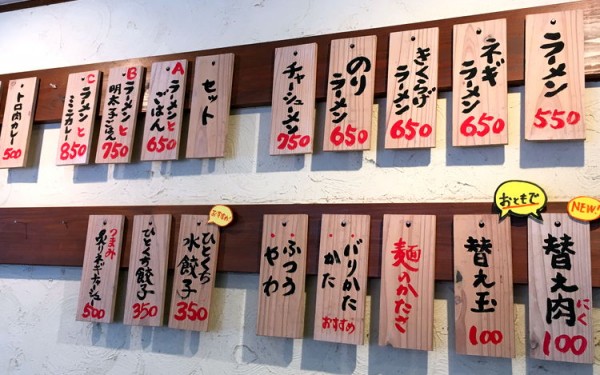 ラーメン
550
ネギ
ラーメン
650
きくらげ
ラーメン
650
のり
ラーメン
650
チャーシューメン
750
セット
A
ラーメンと
ごはん
650
B
ラーメンと
明太子ごはん
750
C
ラーメンと
ミニカレー
850
トロ肉カレー
500
NEW!
替え肉
にく
100
おともで
替え玉
100
麺のかたさ
バリかた
かた
おすすめ
ふつう
やわ
おすすめ
ひとくち
水餃子
350
ひとくち餃子
350
つまみ
炙りネギチャーシュー
500